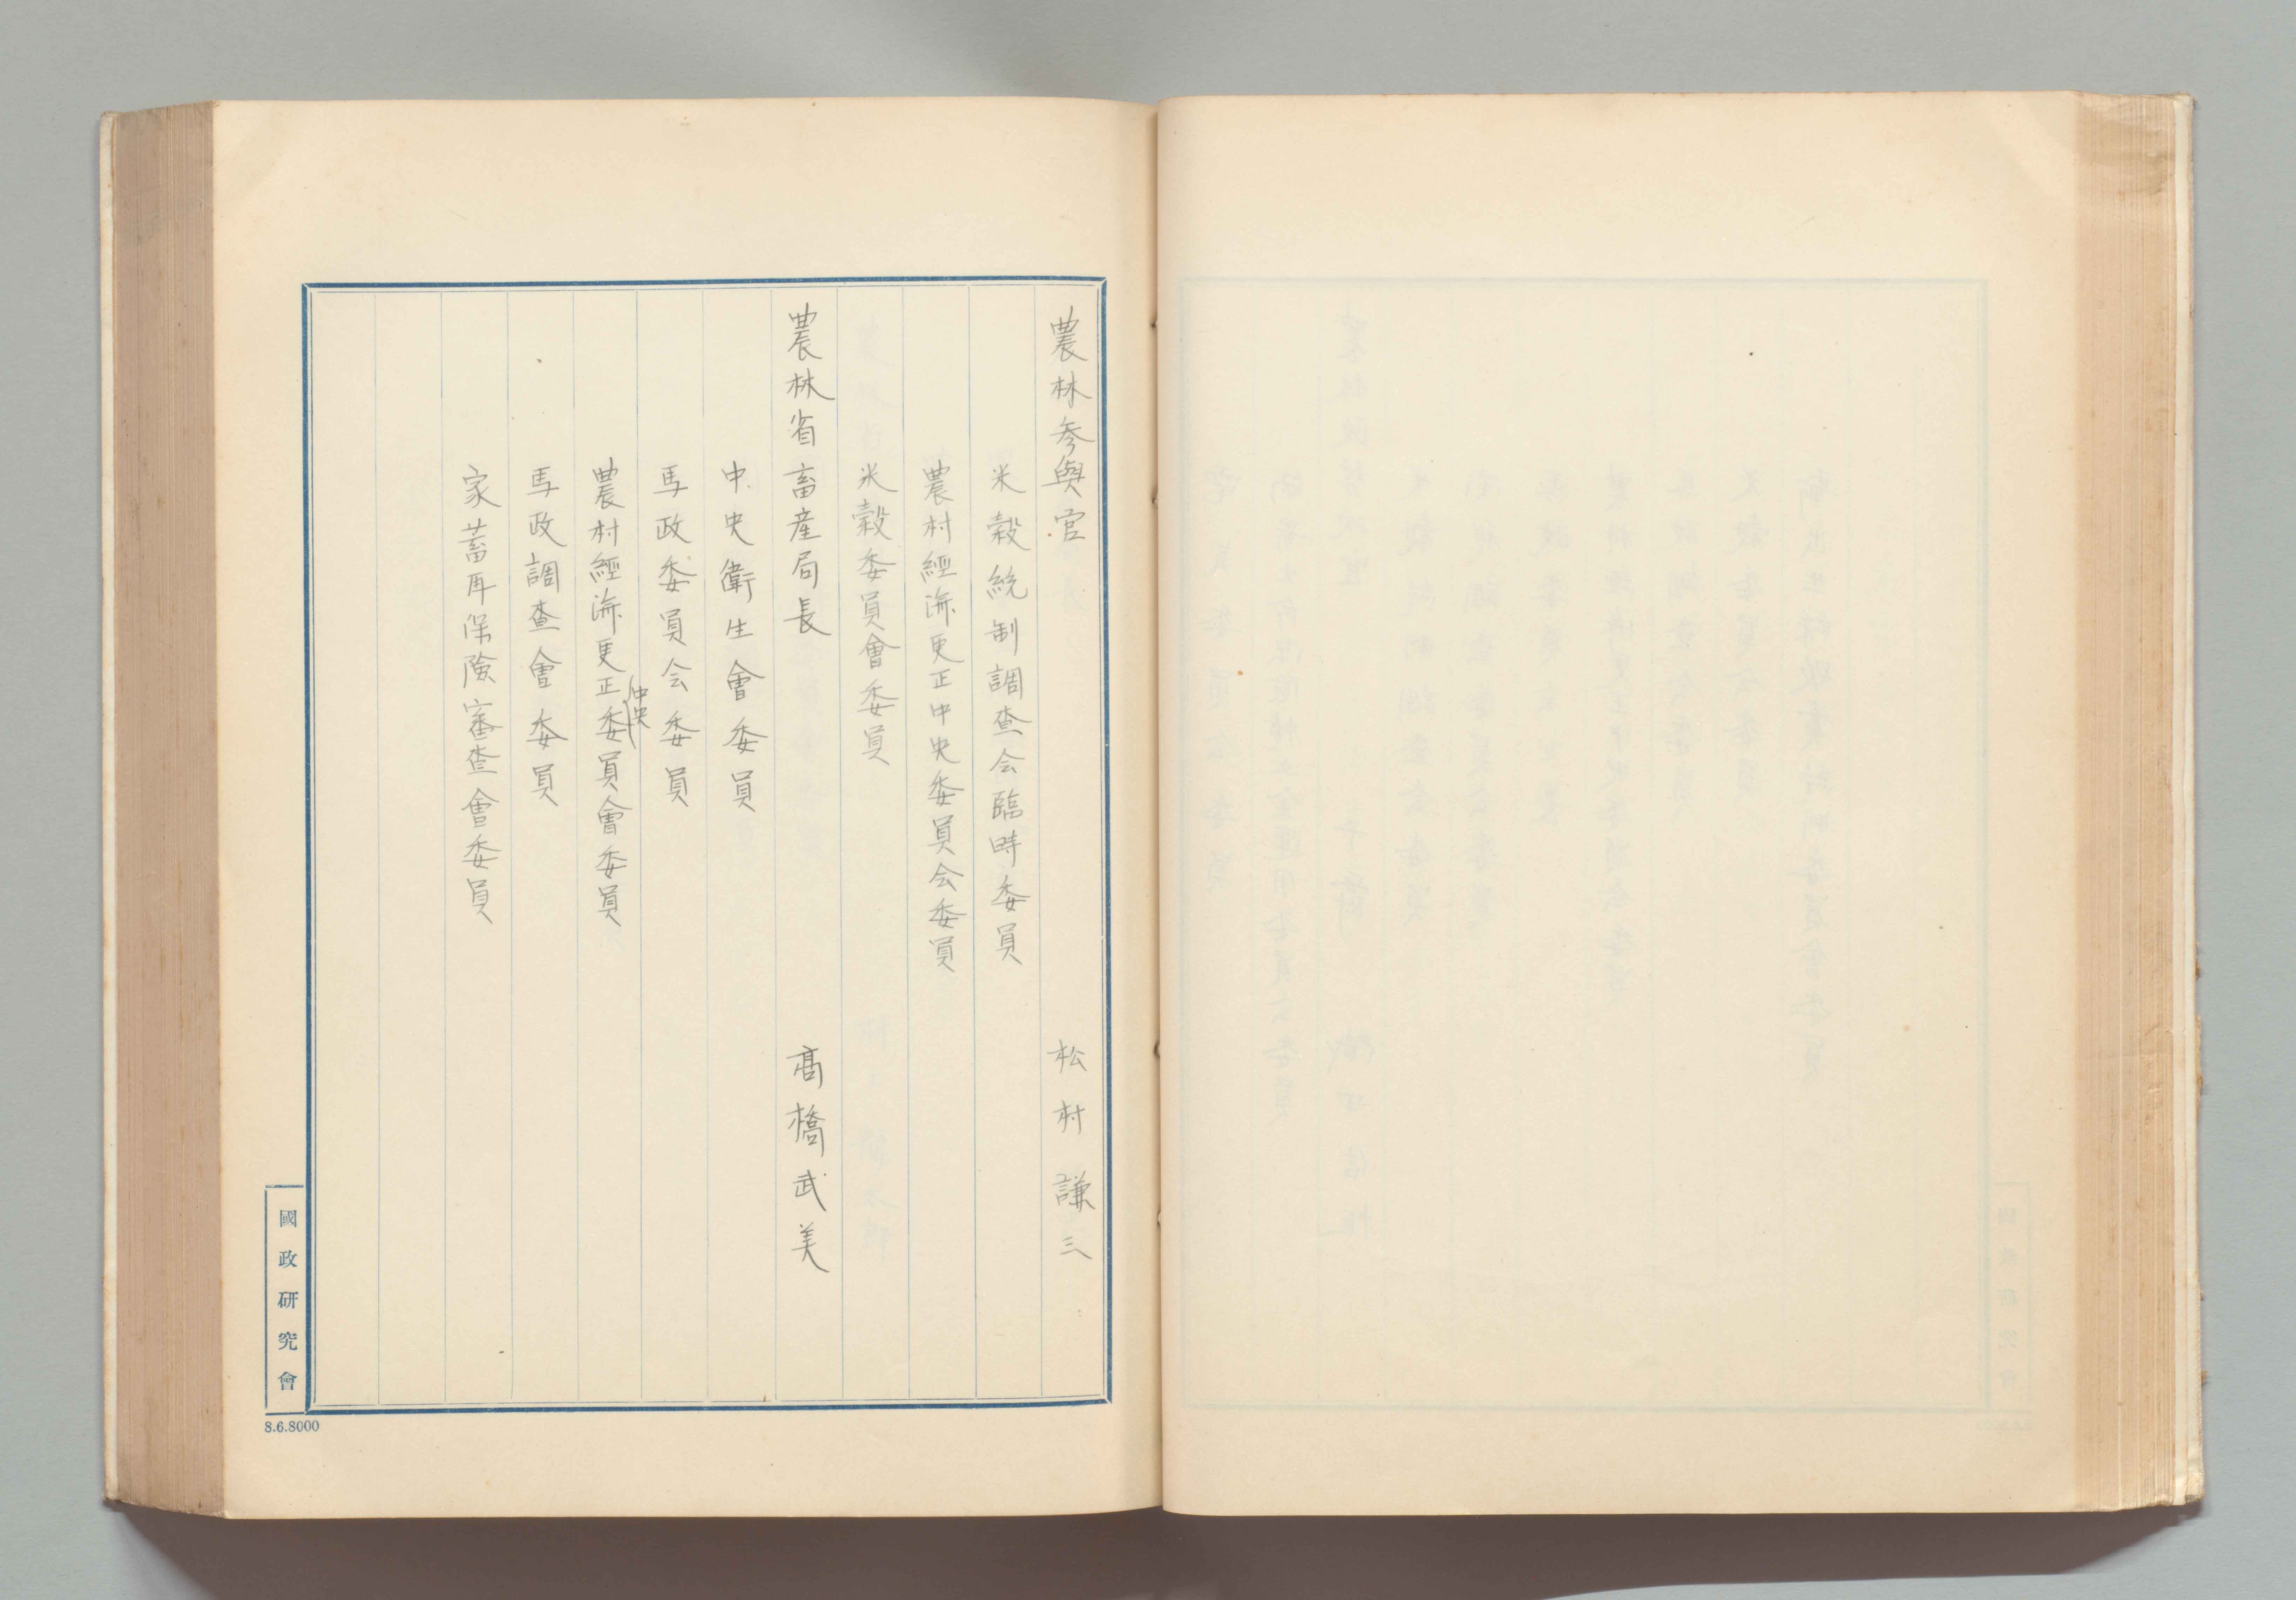 農林参與官　松村謙三
米穀統制調查会臨時委員
農村經濟更正中央委員会委員
米穀委員會委員
農林省畜産局長　髙橋武美
中央衛生會委員
馬政委員会委員
農村經濟更正(中央)委員會委員
馬政調查會委員
家蓄再保険審查會委員
國政研究會
8.6.8000